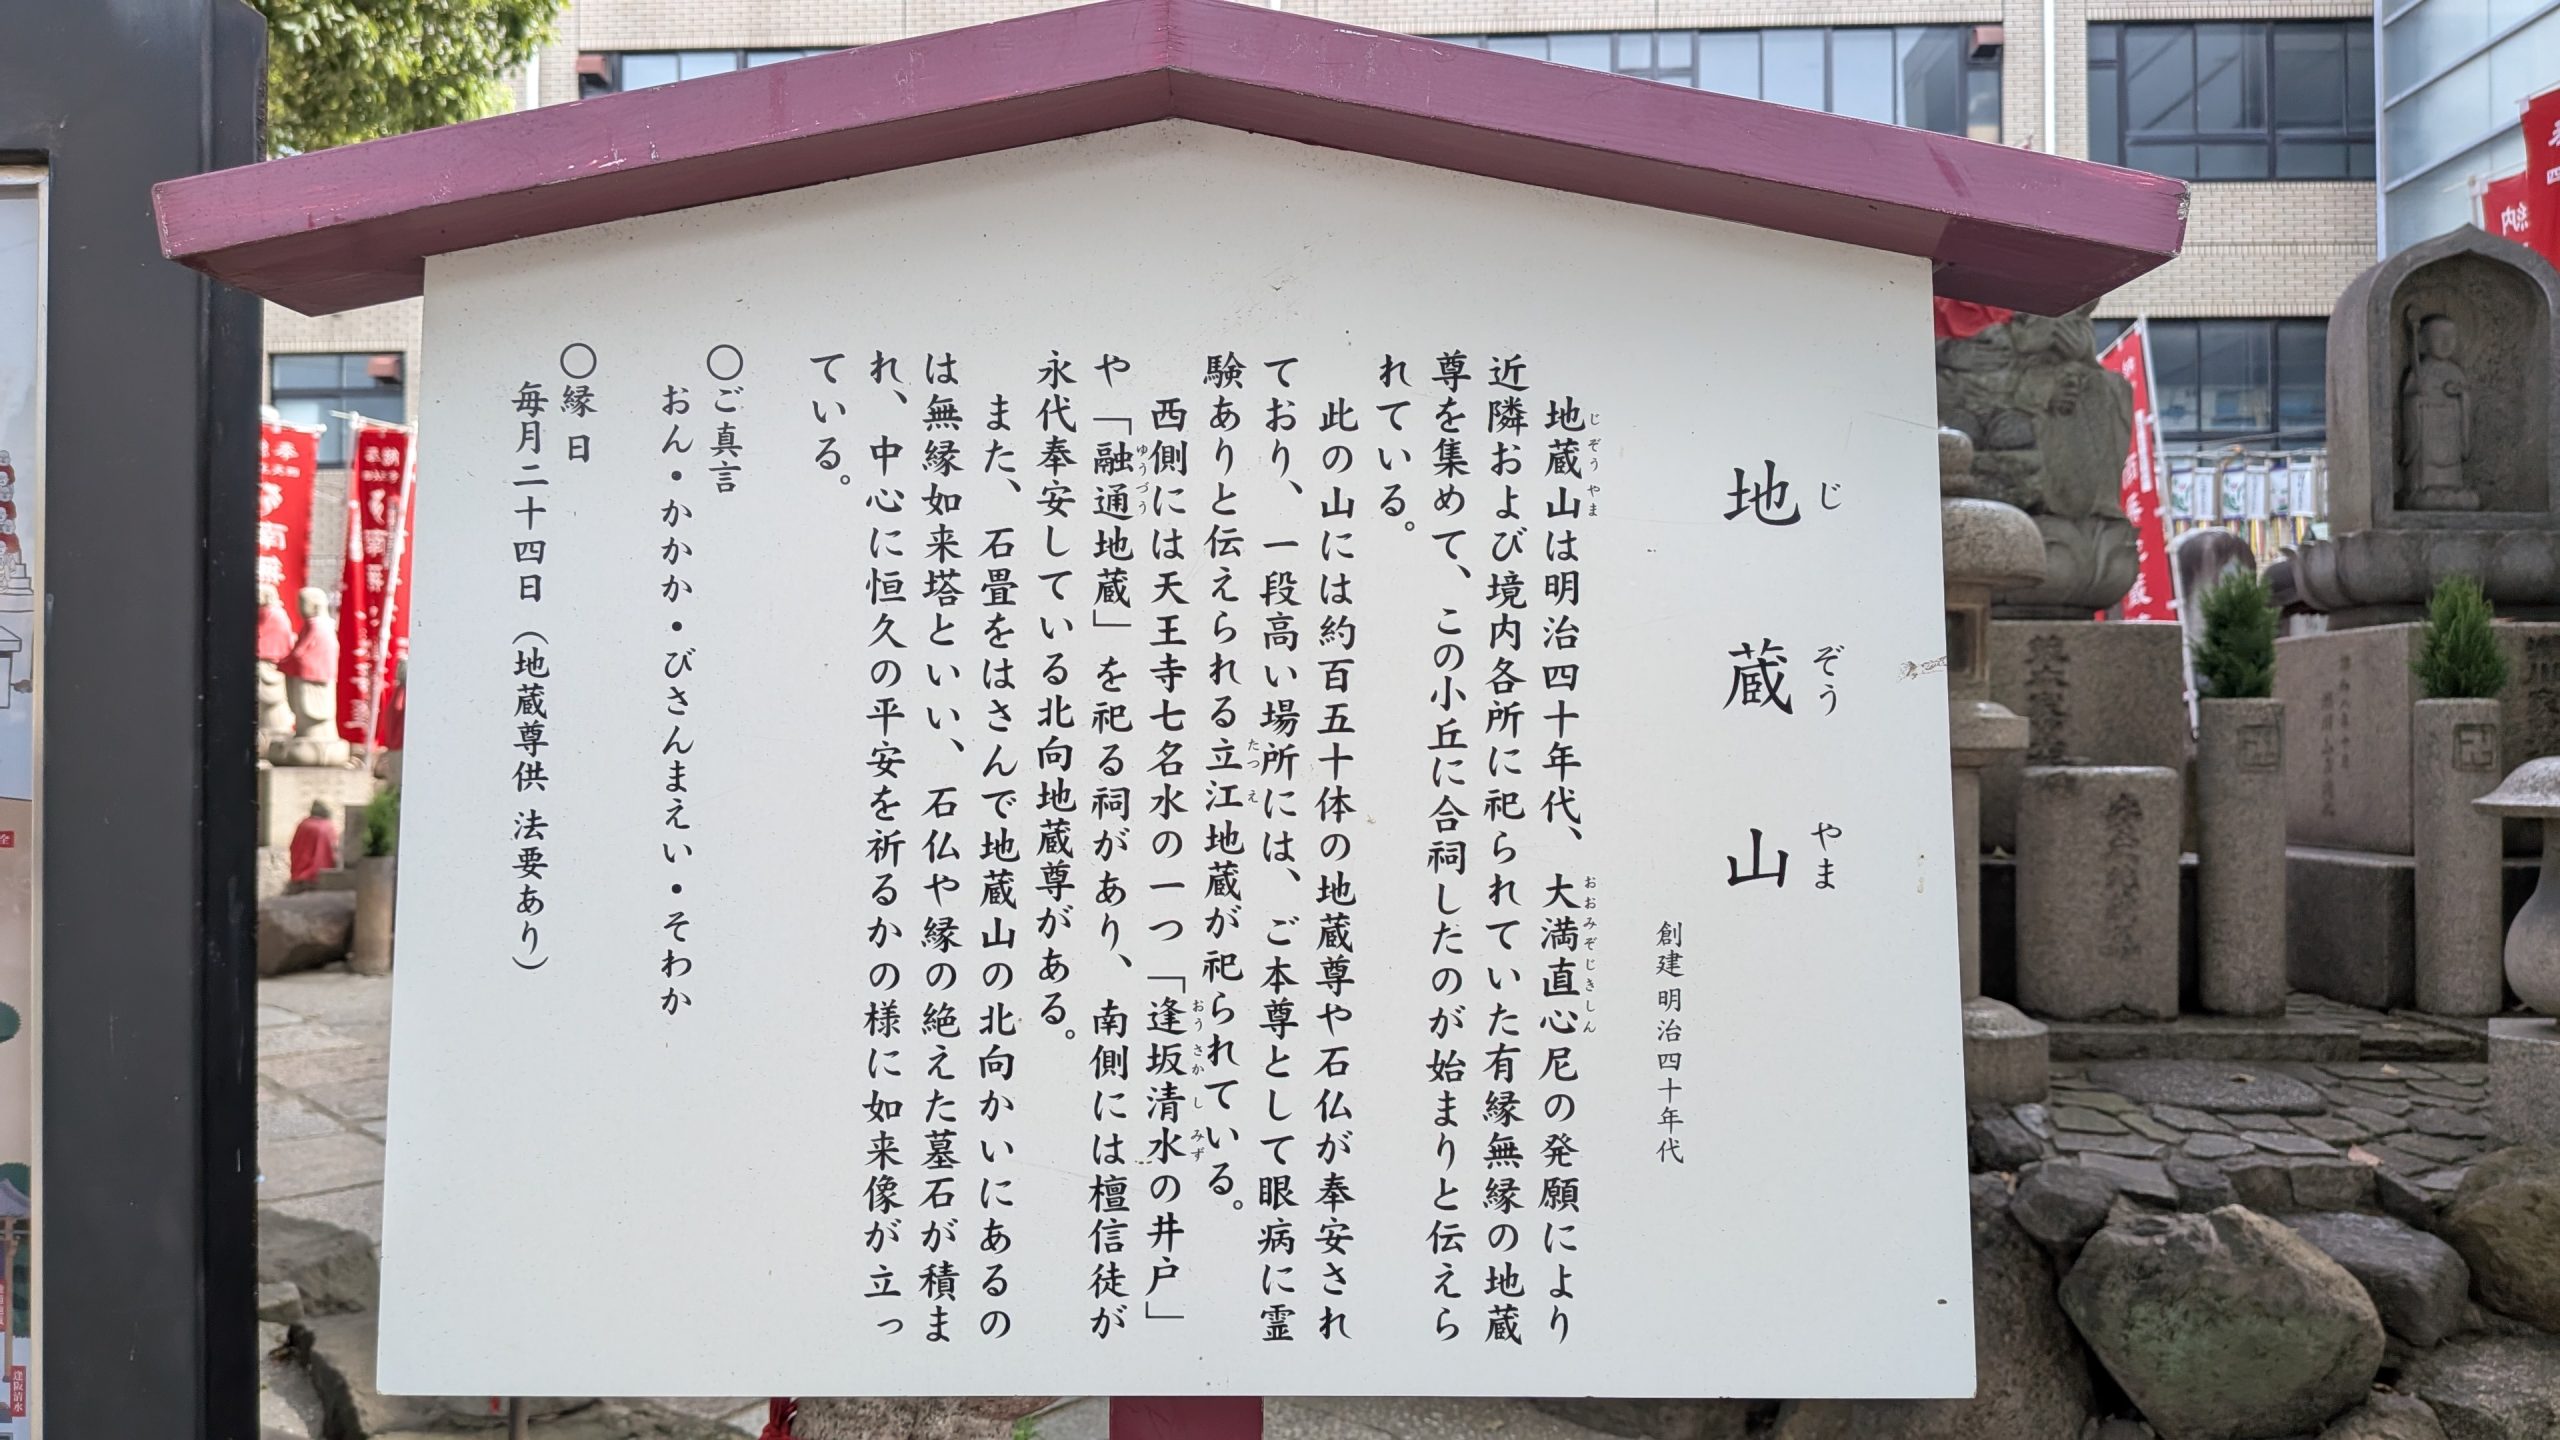 地蔵山
じぞうやま
創建明治四十年代
地蔵山は明治四十年代、大満直心尼の発願により
じぞうやま
おおみぞじきしん
近隣および境内各所に祀られていた有縁無縁の地蔵
尊を集めて、この小丘に合祠したのが始まりと伝えら
れている。
此の山には約百五十体の地蔵尊や石仏が奉安され
ており、一段高い場所には、ご本尊として眼病に霊
験ありと伝えられる立江地蔵が祀られている。
たつえ
西側には天王寺七名水の一つ「逢坂清水の井戸」
おうさかしみず
や「融通地蔵」を祀る祠があり、南側には檀信徒が
ゆうづう
永代奉安している北向地蔵尊がある。
また、石畳をはさんで地蔵山の北向かいにあるの
は無縁如来塔といい、石仏や縁の絶えた墓石が積ま
れ、中心に恒久の平安を祈るかの様に如来像が立っ
ている。
〇ご真言
おん・かかか・びさんまえい・そわか
〇縁日
毎月二十四日（地蔵尊供 法要あり）
逢阪清水